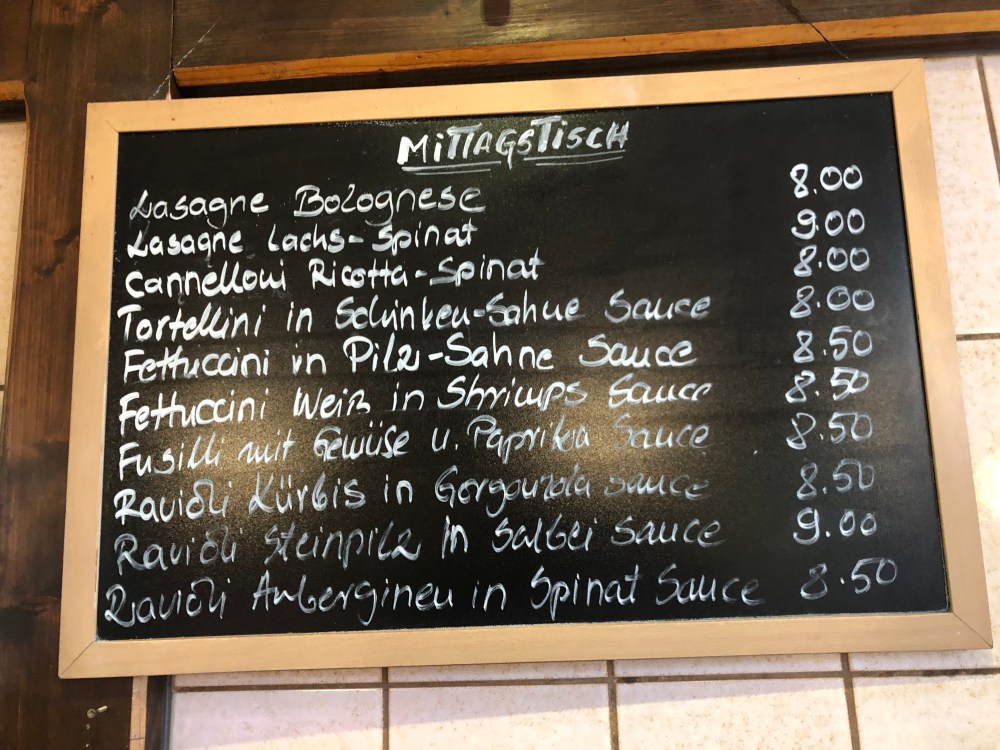 MiTTAGSTiSCH
Lasagne Bolognese 8.00
Lasagne Lachs-Spinat 9.00
Cannelloni Ricotta-Spinat 8.00
Tortellini in Schinken-Sahne Sauce 8.00
Fettuccini in Pilz-Sahne Sauce 8.50
Fettuccini Weiß in Shrimps Sauce 8.50
Fusilli mit Gemüse u. Paprika Sauce 8.50
Ravioli Kürbis in Gorgonzola Sauce 8.50
Ravioli Steinpilz in Salbei Sauce 9.00
Ravioli Auberginen in Spinat Sauce 8.50